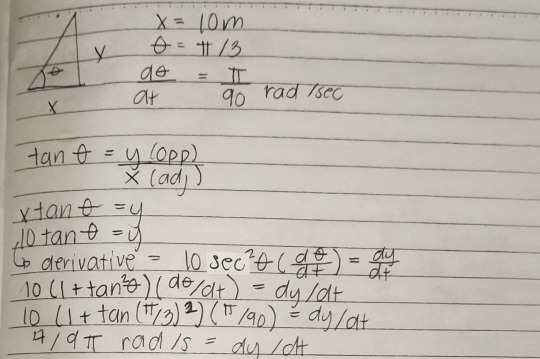 x = 10m
θ = π/3
y
θ
x
dθ/dt = π/90 rad/sec
tan θ = y (opp)/x (adj)
x tan θ = y
10 tan θ = y
↳ derivative = 10 sec²θ (dθ/dt) = dy/dt
10 (1 + tan²θ) (dθ/dt) = dy/dt
10 (1 + tan(π/3)²) (π/90) = dy/dt
4/9π rad/s = dy/dt